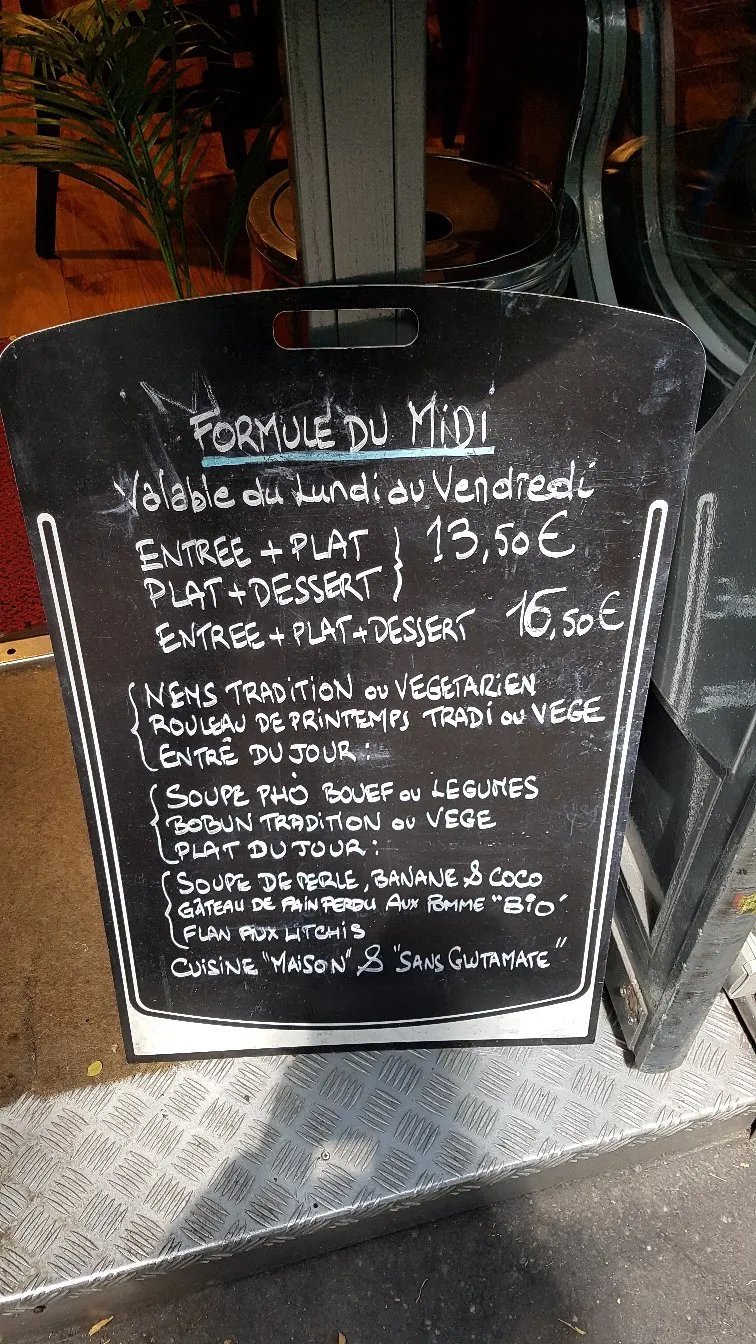 FORMULE DU MiDi
Valable du Lundi au Vendredi
ENTREE + PLAT } 13,50 €
PLAT + DESSERT
ENTREE + PLAT + DESSERT 16,50 €
NEMS TRADITION ou VEGETARIEN
ROULEAU DE PRINTEMPS TRADI ou VEGE
ENTRÊ DU JOUR :
SOUPE PHÒ BOUEF ou LEGUMES
BOBUN TRADITION ou VEGE
PLAT DU JOUR :
SOUPE DE PERLE, BANANE & COCO
GÂTEAU DE PAIN PERDU AUX POMME "BiO"
FLAN AUX LITCHIS
CUISINE "MAISON" & "SANS GLUTAMATE"